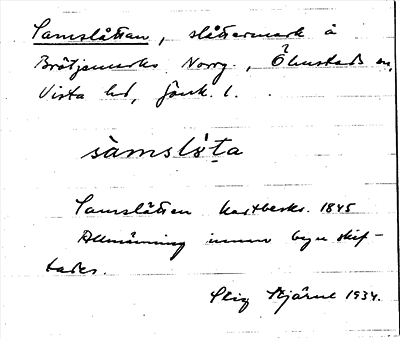 Samslåttan, slåttermark å
Brötjemarks Norrg., Ölmstads sn,
Vista hd, Jönk. l.
sàmslò̜ta
Samslåtten kartbeskr. 1845
Allmänning innan byn skif-
tades.
Stig Stjärne 1934.